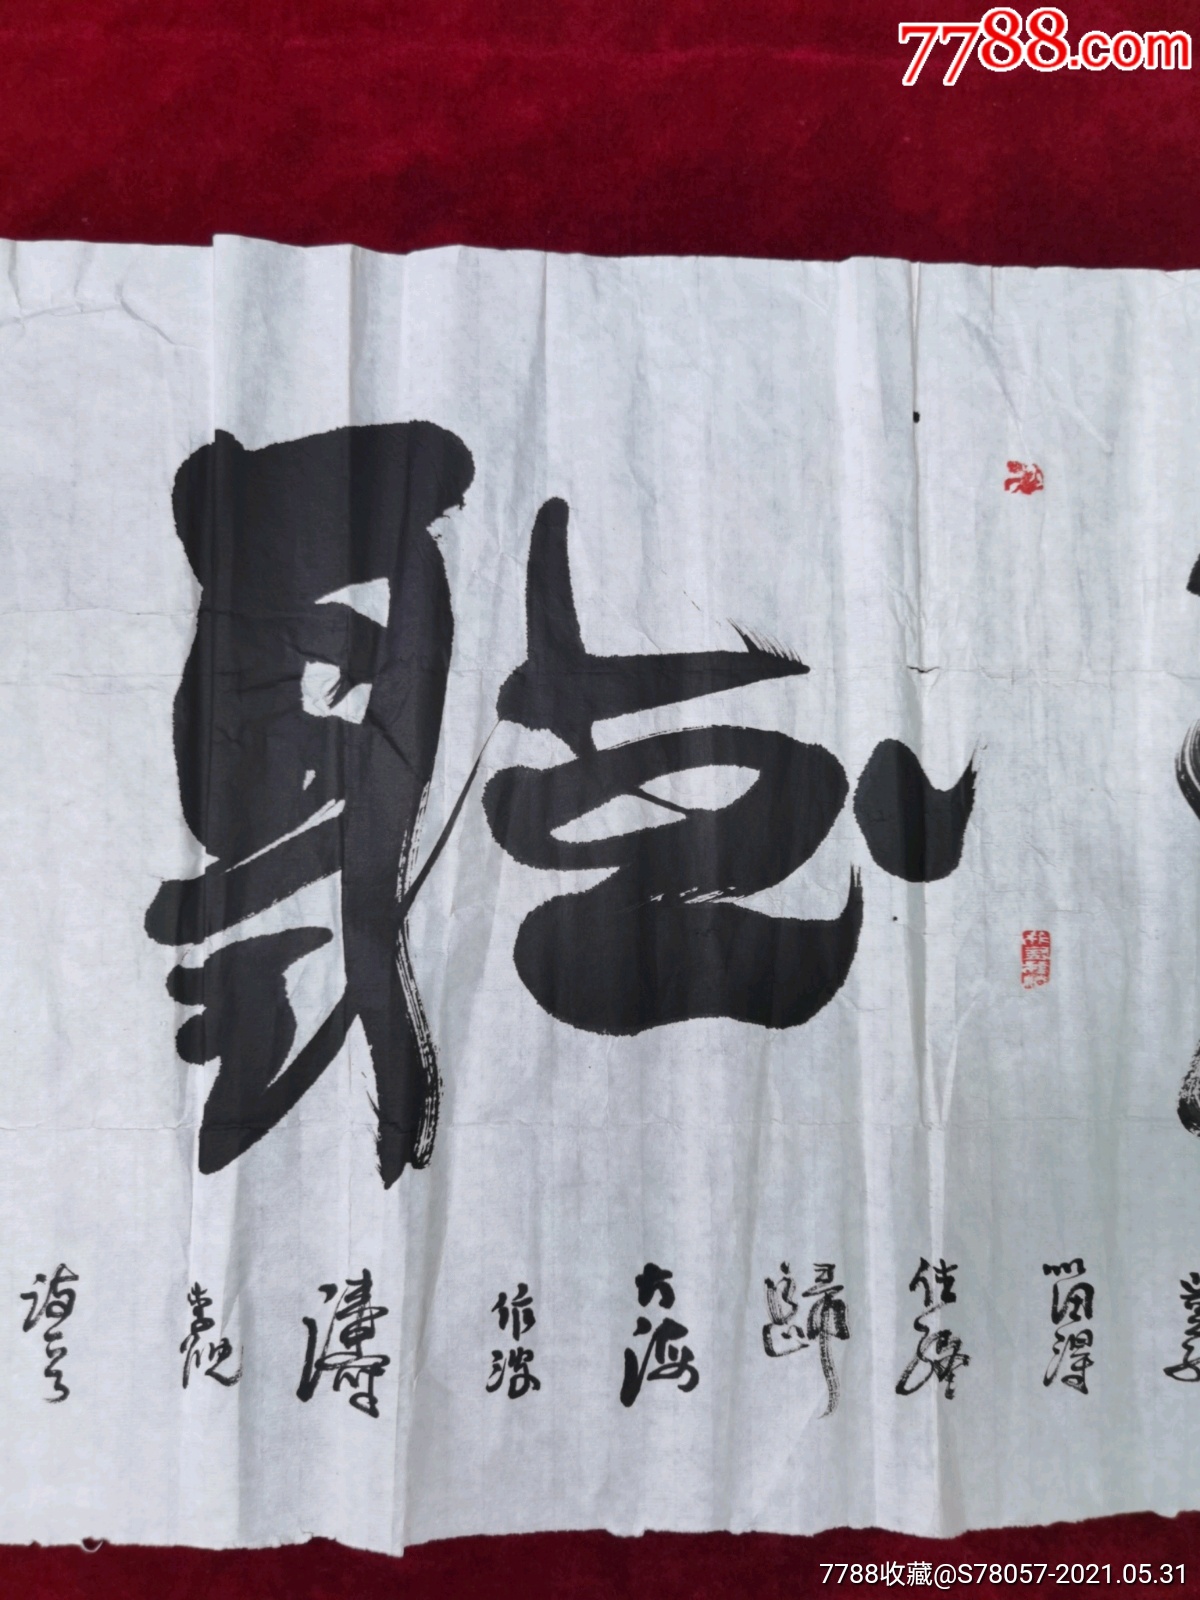 7788.com
聽
留得
住終
歸
大海
作波
濤
李忱
7788收藏@S78057-2021.05.31